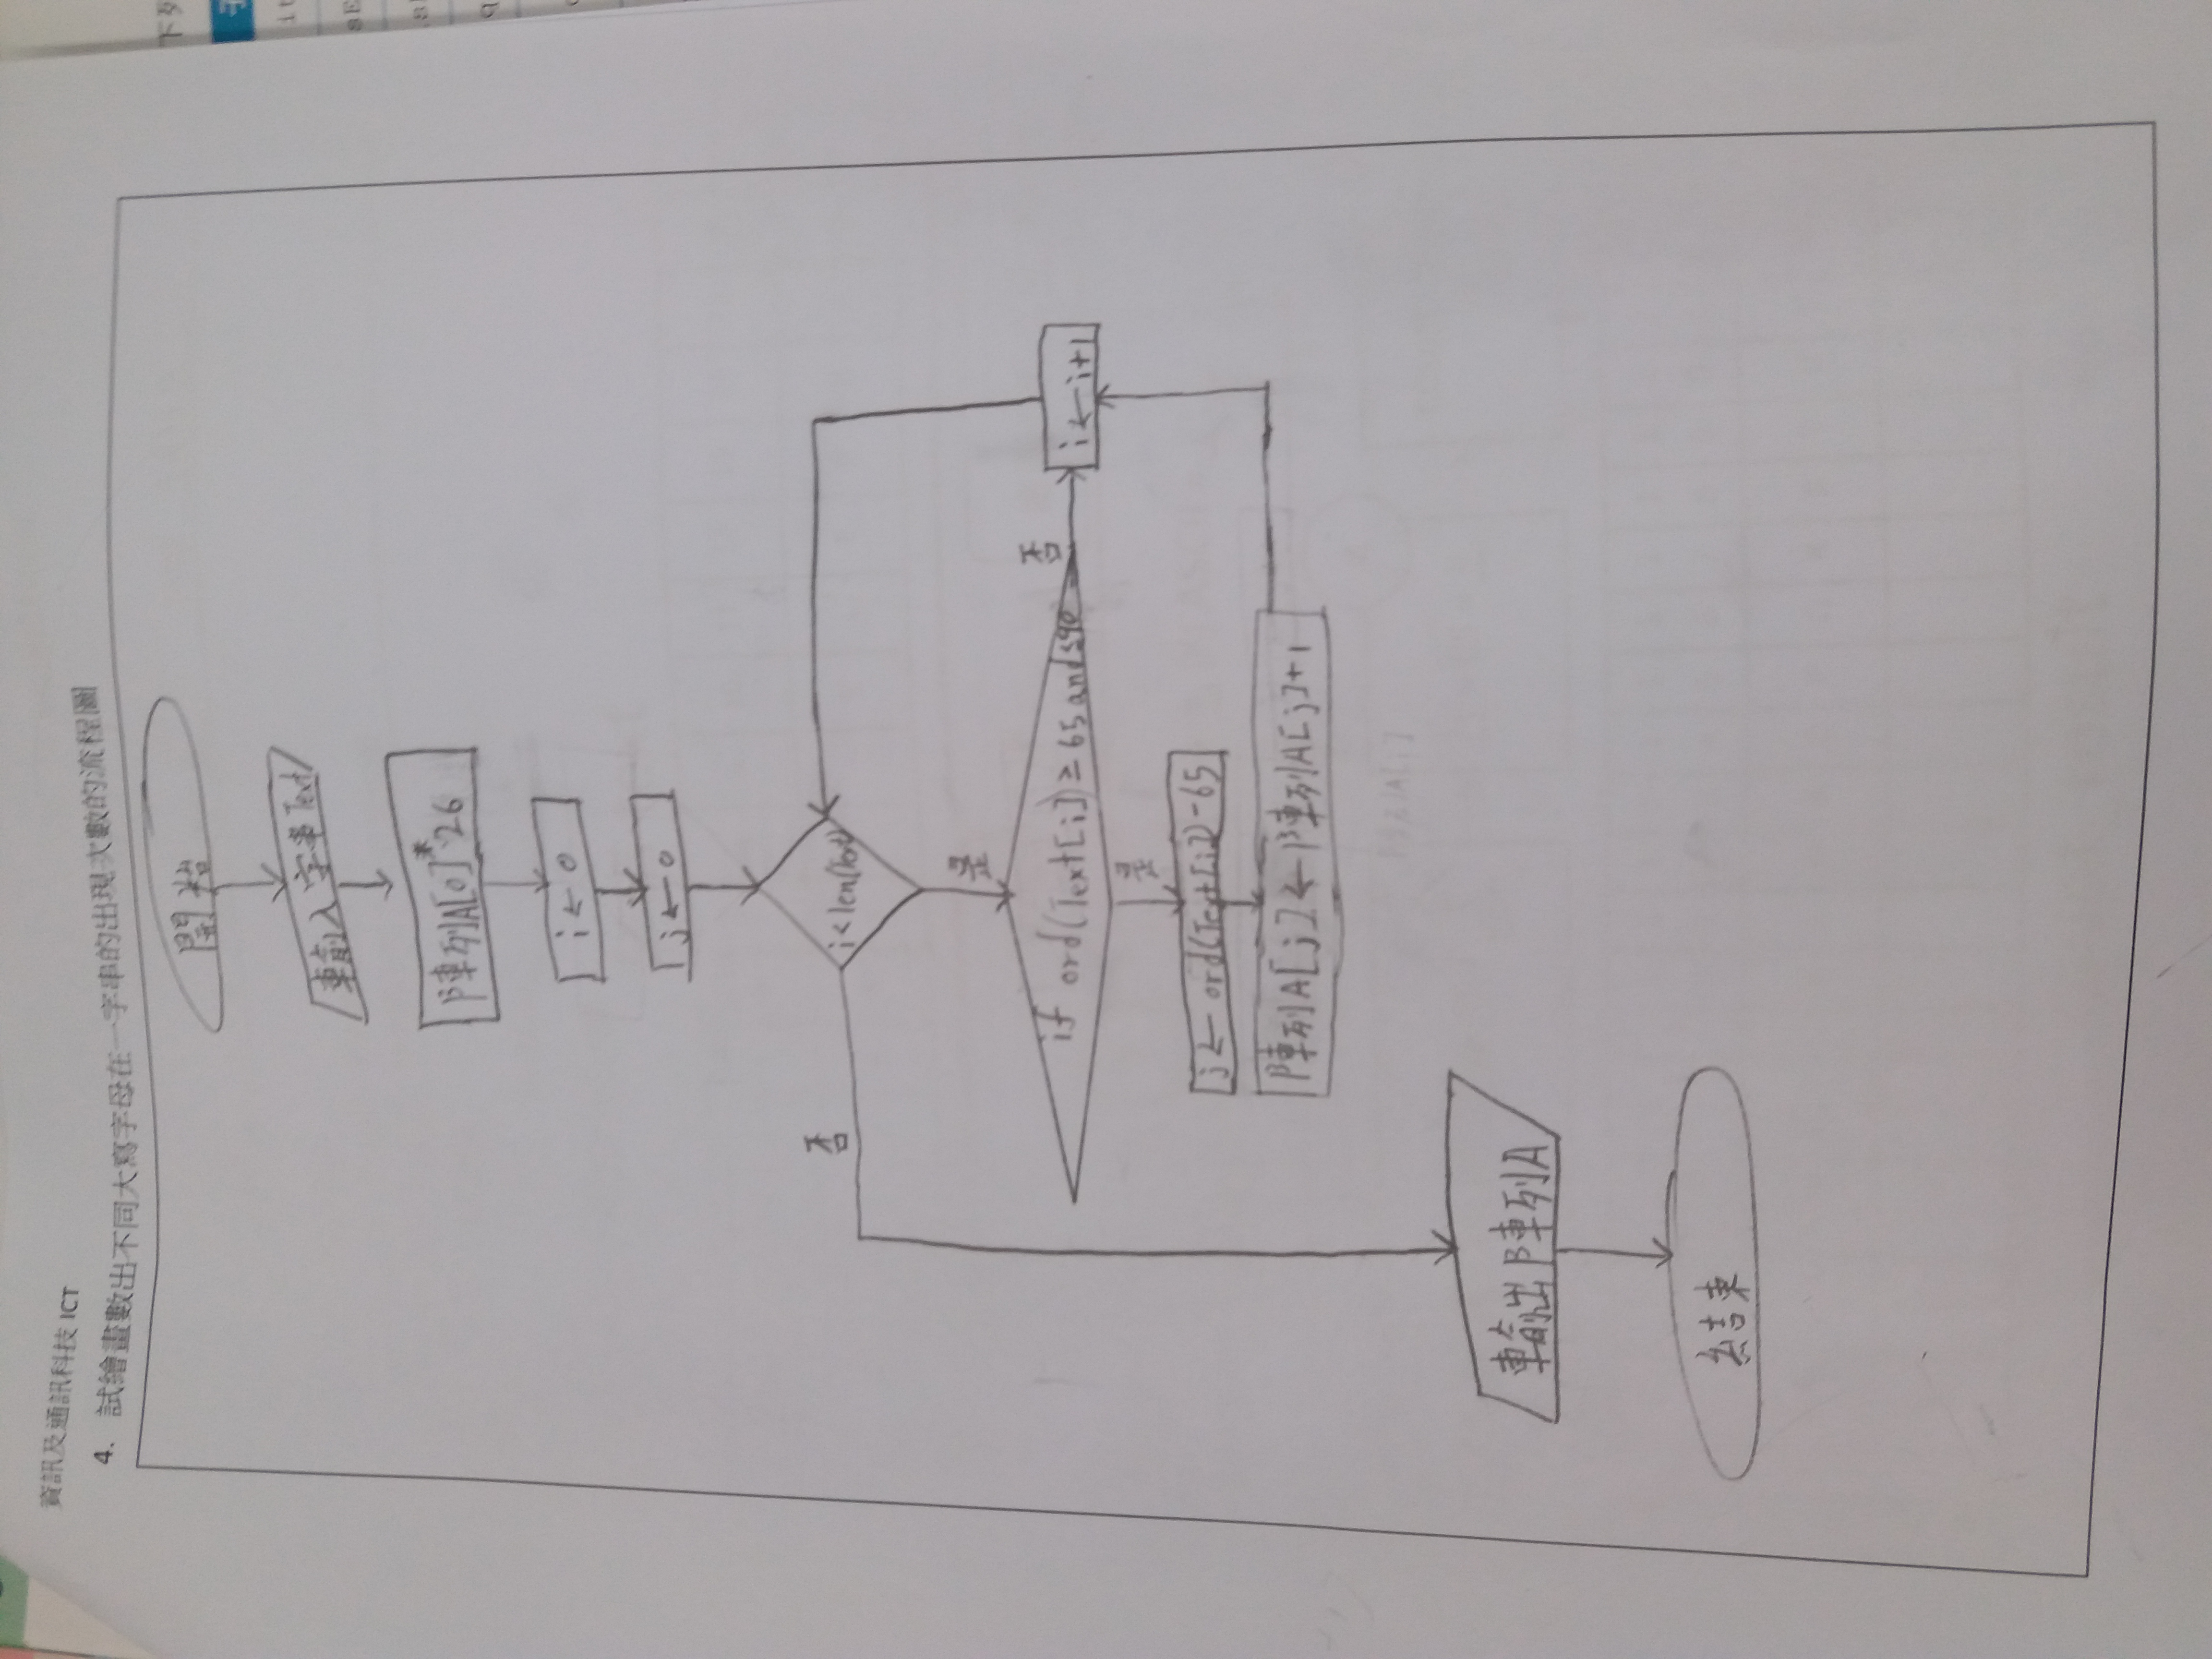 資訊及通訊科技 ICT
4. 試繪畫數出不同大寫字母在一字串的出現次數的流程圖
開始
輸入字串Text
陣列A[0]*26
i ← 0
j ← 0
i < len(Text)
否
是
if ord(Text[i]) ≥ 65 and ≤ 90
否
i ← i+1
是
j ← ord(Text[i])-65
陣列A[j] ← 陣列A[j]+1
輸出陣列A
結束